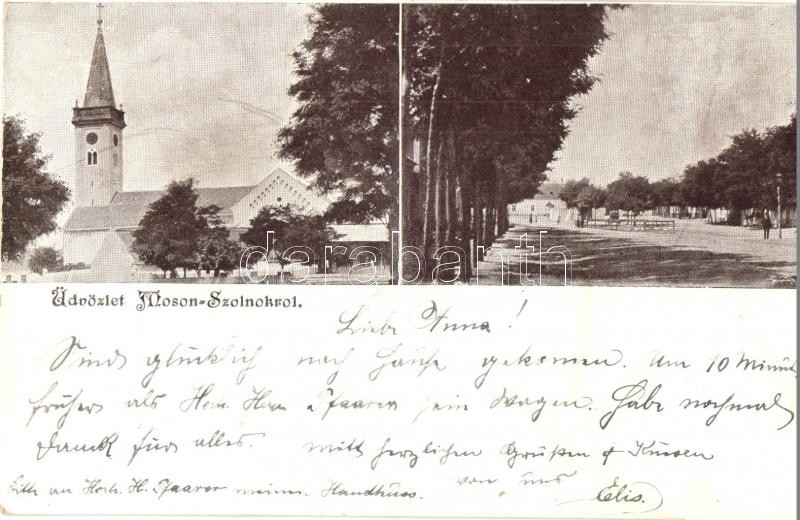 darabanth
Üdvözlet Moson-Szolnokrol.
Liebe Anna!
Sind glücklich nach Hause gekomen. Um 10 Minut
früher als Hoch. Herr Pfaarer sein Wagen. Habe nochmals
Dank für alles. mitt herzlichen Grüßen & Küssen
von uns
Elis.
Bitte an Hoch. H. Pfaarer meinen Handkuss.